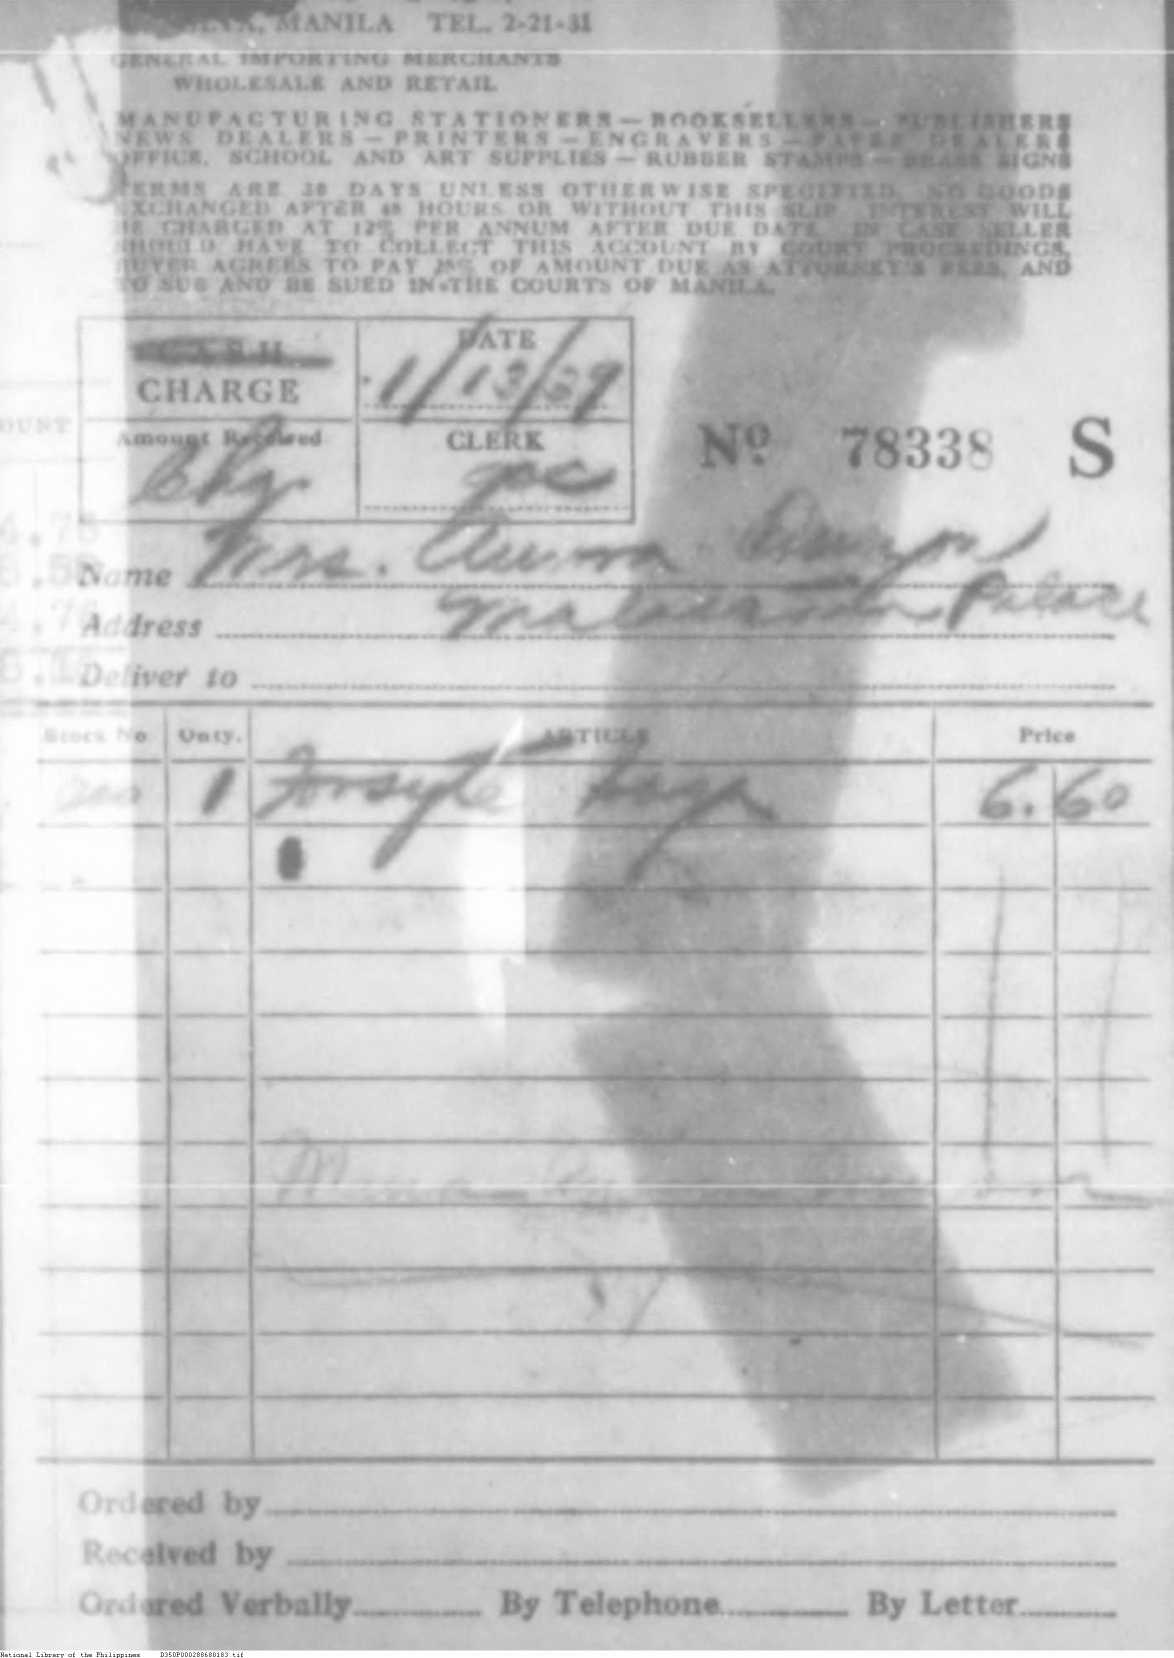 MANILA TEL. 2-21-31
GENERAL IMPORTING MERCHANTS
WHOLESALE AND RETAIL
MANUFACTURING STATIONERS — BOOKSELLERS — PUBLISHERS
NEWS DEALERS — PRINTERS — ENGRAVERS — PAPER DEALERS
OFFICE, SCHOOL AND ART SUPPLIES — RUBBER STAMPS — BRASS SIGNS
TERMS ARE 30 DAYS UNLESS OTHERWISE SPECIFIED. NO GOODS
EXCHANGED AFTER 48 HOURS OR WITHOUT THIS SLIP. INTEREST WILL
BE CHARGED AT 12% PER ANNUM AFTER DUE DATE. IN CASE SELLER
SHOULD HAVE TO COLLECT THIS ACCOUNT BY COURT PROCEEDINGS,
BUYER AGREES TO PAY 25% OF AMOUNT DUE AS ATTORNEY'S FEES, AND
TO SUE AND BE SUED IN THE COURTS OF MANILA.
CASH DATE
CHARGE 1/13/39
OUNT
Amount Received CLERK
Chg.
No. 78338 S
Name Mrs.
Address Malacañan Palace
Deliver to
Stock No Qnty. ARTICLE Price
1 Forsyte Saga 6.60
Ordered by
Received by
Ordered Verbally By Telephone By Letter
National Library of the Philippines D350P000288680183.tif